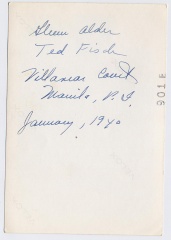 Glenn Alder
Ted Fisch
Villamar Court
Manila, P.I.
January, 1940